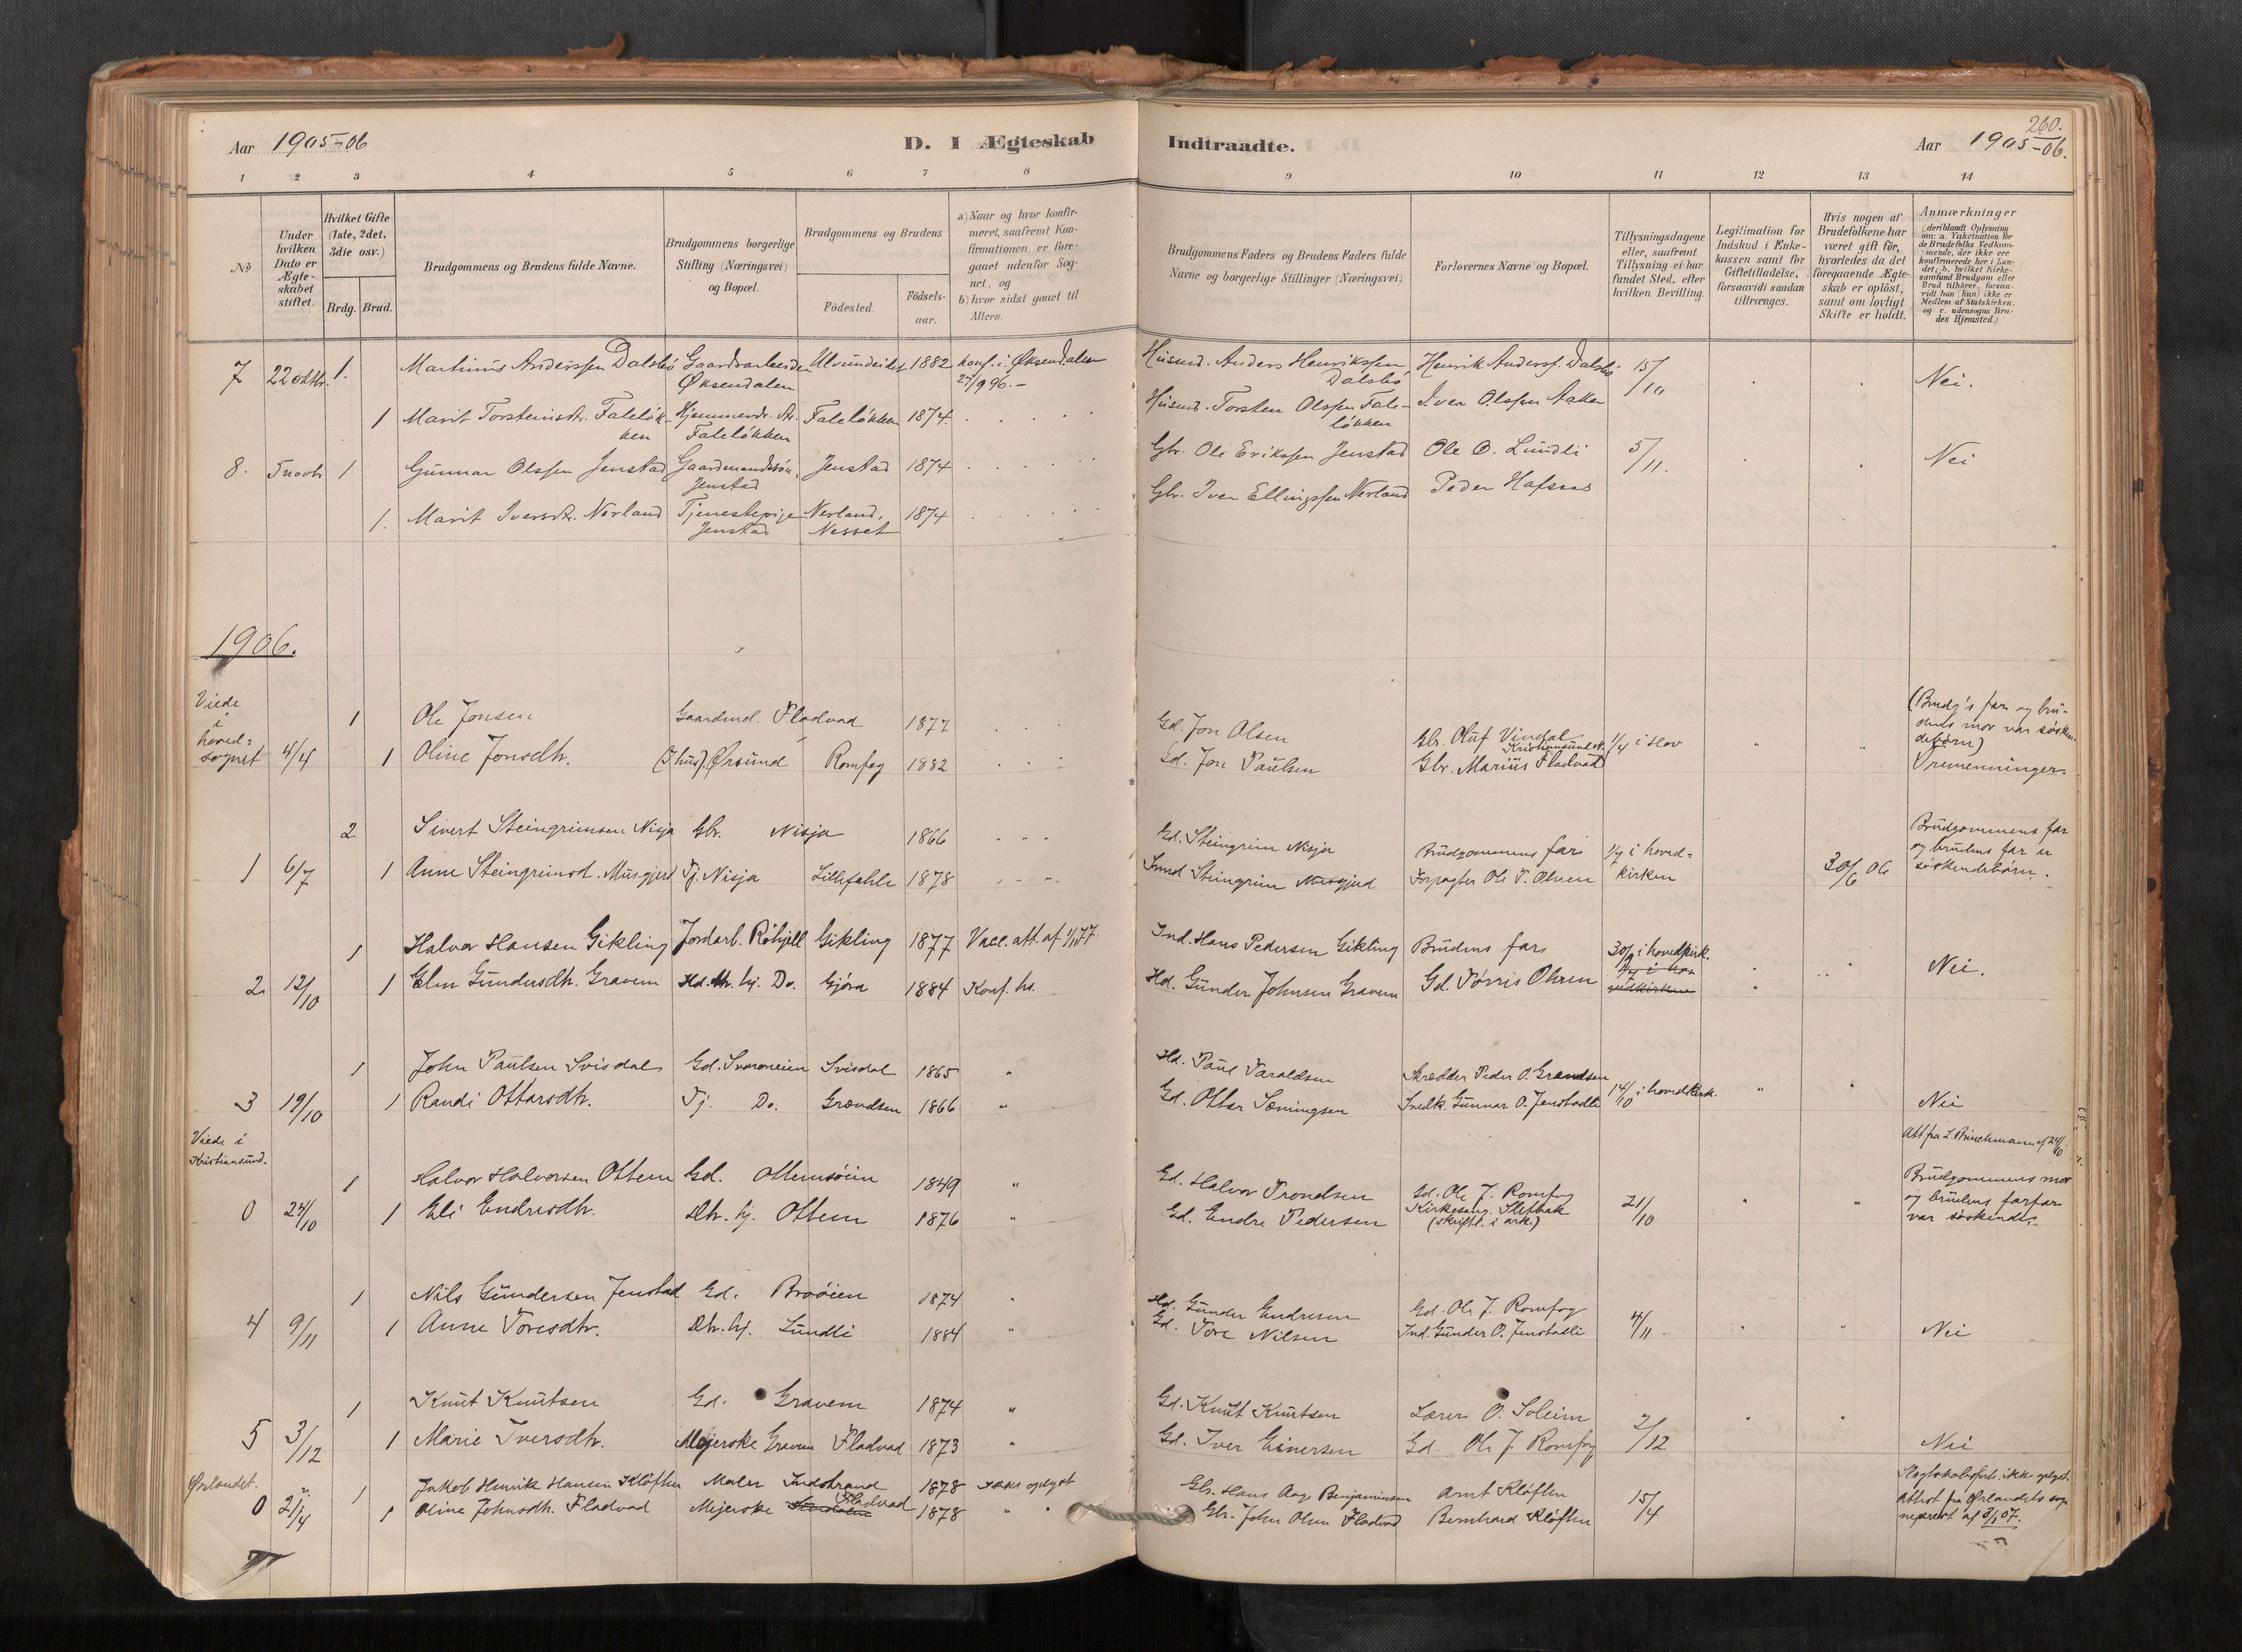 Aar 1905-06
D. I Ægteskab
Indtraadte.
260.
Aar 1905-06.
1 2 3 4 5 6 7 8
9 10 11 12 13 14
No
Under hvilken Dato er Ægteskabet stiftet.
Hvilket Gifte (1ste, 2det, 3die osv.)
Brdg. Brud.
Brudgommens og Brudens fulde Navne.
Brudgommens borgerlige Stilling (Næringsvei) og Bopæl.
Brudgommens og Brudens
Födested.
Födselsaar.
a) Naar og hvor konfirmeret, saafremt Konfirmationen er foregaaet udenfor Sognet, og
b) hvor sidst gaaet til Alters.
Brudgommens Faders og Brudens Faders fulde Navne og borgerlige Stillinger (Næringsvei)
Forlovernes Navne og Bopæl.
Tillysningsdagene eller, saafremt Tillysning ei har fundet Sted, efter hvilken Bevilling.
Legitimation for Indskud i Enkekassen samt for Giftetilladelse, forsaavidt saadan tiltrænges.
Hvis nogen af Brudefolkene har været gift för, hvorledes da det foregaaende Ægteskab er oplöst, samt om lovligt Skifte er holdt.
Anmærkninger (deriblandt Oplysning om: a. Vakcination for de Brudefolks Vedkommende, der ikke ere konfirmerede her i Landet; b. hvilket Kirkesamfund Brudgom eller Brud tilhörer, forsaavidt han (hun) ikke er Medlem af Statskirken, og c. udensogns Brudes Hjemsted.)
7 22 oktbr. 1. Martinus Anderssen Dalsbö Gaardarbeider Øksendalen Ulvundeidet 1882 konf. i Øksendalen 27/9 96. - Husmd. Anders Henrikssen Dalsbö Henrik Anderss. Dalsbö 15/10 Nei.
1 Marit Torsteinsdtr. Faleløkken Hjemmevr. dtr. Faleløkken Faleløkken 1874. Husmd. Torsten Olssen Faleløkken Iver Olssen Aaker
8. 5 novbr 1 Gunnar Olssen Jenstad Gaardmandssön, Jenstad Jenstad 1874 Gbr. Ole Erikssen Jenstad Ole O. Lundli 5/11. Nei
1. Marit Iversdtr. Nerland Tjenestepige Jenstad Nerland, Nesset 1874 Gbr. Iver Ellingssen Nerland Peder Hafsaas
1906.
Viede i hovedsognet 4/4
1 Ole Jonsen Gaardmd. Fladvad 1877 Gd. Jon Olsen Gbr. Oluf Vindal Kristiansund N. 1/4 i Hov (Brudg's far og brudens mor var søskendebørn)
1 Oline Jonsdtr. (I hus). Ørsund Romfog 1882 Gd. Jon Paulsen Gbr. Marius Fladvad Tremenninger.
2 Sivert Steingrimsen Nisja Gbr. Nisja 1866 Gd. Steingrim Nisja Brudgommens far 1/7 i hovedkirken Brudgommens far og brudens far er søskendebørn.
1 6/7 1 Anne Steingrimsd. Musgjerd Tj. Nisja Lillefahle 1878 Steingrim Musgjerd Forpagter Ole T. Ohren 30/6 06
1 Halvor Hansen Gikling Jordarb. Röhjell Gikling 1877 Vacc. att. af 1/1 77. Ind. Hans Pedersen Gikling Brudens far 30/9 i hovedkirk.
2 12/10 1 Elen Gundersdtr. Gravem Hd. dtr. hj. Do. Gjöra 1884 Konf. hs. Hd. Gunder Johnsen Gravem Gd. Tørris Ohren Nei.
1 John Paulsen Svisdal Gd. Svoroneien Svisdal 1865 " Hd. Paul Haraldsen Skrædder Peder O. Grændsen 14/10 i hovedkirk.
3 19/10 1 Randi Ottarsdtr. Tj. Do. Grændsen 1866 " Gd. Ottar Sæmingsen Snedk. Gunnar O. Jenstadli Nei
Viede i Kristiansund.
Att fra L. Brinchmann af 24/10
1 Halvor Halvorsen Ottem Gd. Ottemsöien 1849 " Gd. Halvor Trondsen Gd. Ole J. Romfog 21/10 Brudgommens mor og brudens farfar var søskende.
0 24/10 1 Eli Endresdtr. dtr. hj. Ottem 1876 " Gd. Endre Pedersen Kirkesang. Slefbak (skriftl. i ark.)
1 Nils Gundersen Jenstad Gd. Broöien 1874 " Hd. Gunder Endresen Gd. Ole J. Romfog 4/11
4 9/11 1 Anne Toresdtr. Dtr. hj. Lundli 1884 " Gd. Tore Nilsen Ind. Gunder O. Jenstadli Nei
1 Knut Knutsen Gd. Gravem 1874 " Gd. Knut Knutsen Lærer O. Soleim 2/12
5 3/12 1 Marie Iversdtr. Mejerske Gravem Fladvad 1873 " Gd. Iver Einersen Gd. Ole J. Romfog Nei
Ørlandet.
1 Jakob Henrik Hansen Kløften Maler Indstrand 1878 ikke oplyst Gbr. Hans Aage Benjaminsen Arnt Kløften 15/4 Slegtskabsforh. ikke oplyst.
0 21/4 1 Oline Johnsdtr. Fladvad Mejerske Fladvad 1878 " " Gbr. John Olsen Fladvad Bernhard Kløften Attest fra Ørlandets sogneprest af 3/1 07.